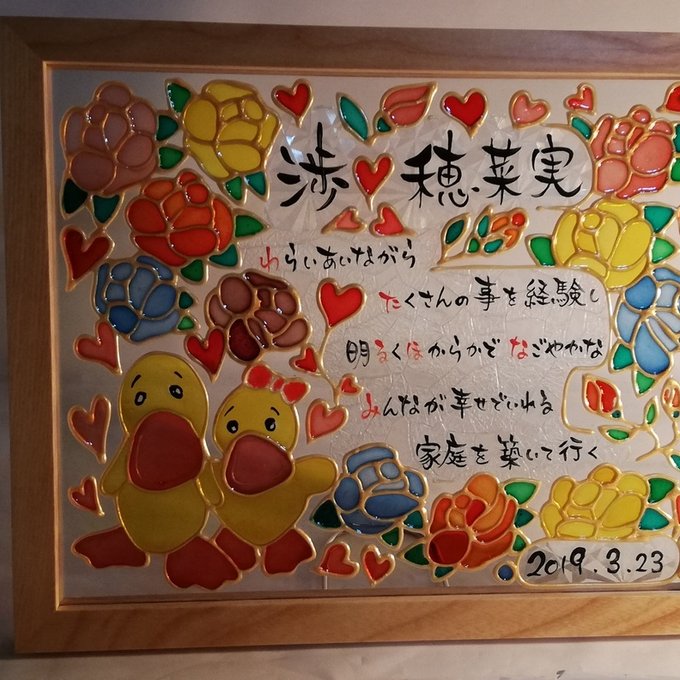 渉♥穂菜実
わらいあいながら
たくさんの事を経験し
明るくほがらかで なごやかな
みんなが幸せでいれる
家庭を築いて行く
2019.3.23